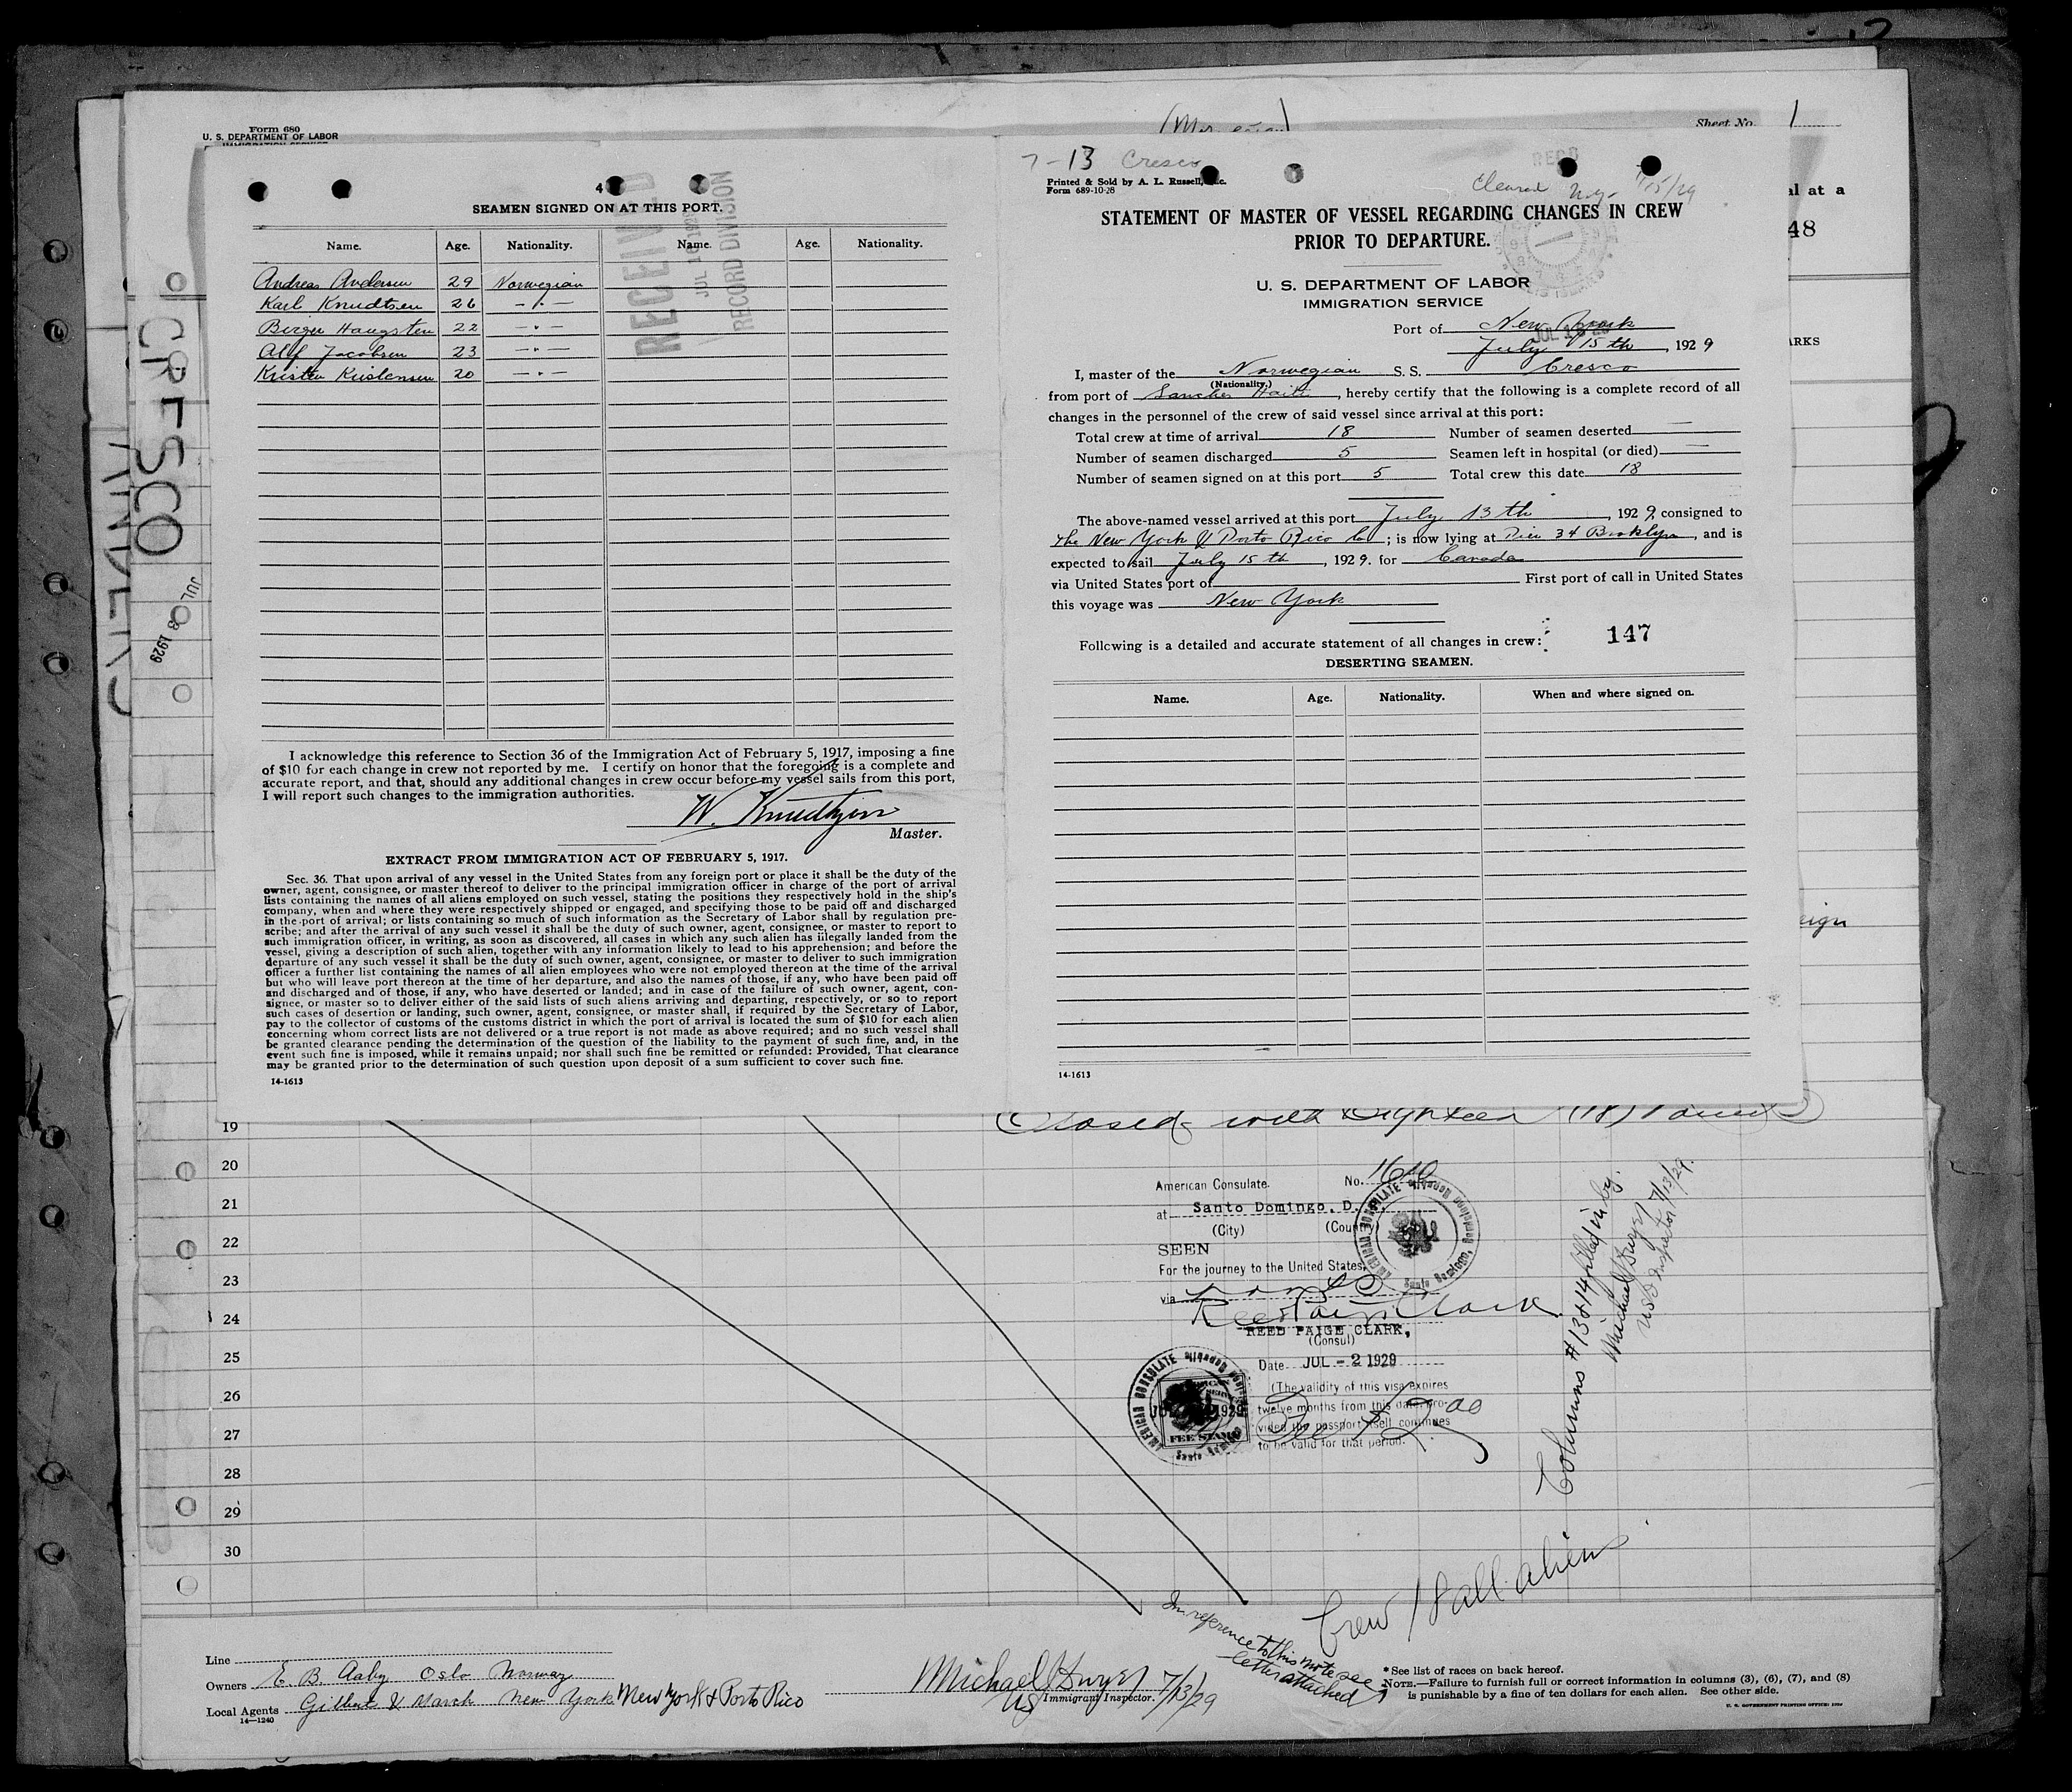 Form 680
U. S. DEPARTMENT OF LABOR
IMMIGRATION SERVICE
Sheet No. 1
al at a
48
ARKS
eign
CRESCO
JUL 3 1929
4
SEAMEN SIGNED ON AT THIS PORT.
RECEIVED
JUL 16 1929
RECORD DIVISION
Name. Age. Nationality. Name. Age. Nationality.
Andreas Andersen 29 Norwegian
Karl Knudtsen 26 — " —
Birger Haugsten 22 — " —
Alf Jacobsen 23 — " —
Kristen Kristensen 20 — " —
I acknowledge this reference to Section 36 of the Immigration Act of February 5, 1917, imposing a fine
of $10 for each change in crew not reported by me. I certify on honor that the foregoing is a complete and
accurate report, and that, should any additional changes in crew occur before my vessel sails from this port,
I will report such changes to the immigration authorities.
W. Knudtzon
Master.
EXTRACT FROM IMMIGRATION ACT OF FEBRUARY 5, 1917.
Sec. 36. That upon arrival of any vessel in the United States from any foreign port or place it shall be the duty of the
owner, agent, consignee, or master thereof to deliver to the principal immigration officer in charge of the port of arrival
lists containing the names of all aliens employed on such vessel, stating the positions they respectively hold in the ship's
company, when and where they were respectively shipped or engaged, and specifying those to be paid off and discharged
in the port of arrival; or lists containing so much of such information as the Secretary of Labor shall by regulation pre-
scribe; and after the arrival of any such vessel it shall be the duty of such owner, agent, consignee, or master to report to
such immigration officer, in writing, as soon as discovered, all cases in which any such alien has illegally landed from the
vessel, giving a description of such alien, together with any information likely to lead to his apprehension; and before the
departure of any such vessel it shall be the duty of such owner, agent, consignee, or master to deliver to such immigration
officer a further list containing the names of all alien employees who were not employed thereon at the time of the arrival
but who will leave port thereon at the time of her departure, and also the names of those, if any, who have been paid off
and discharged and of those, if any, who have deserted or landed; and in case of the failure of such owner, agent, con-
signee, or master so to deliver either of the said lists of such aliens arriving and departing, respectively, or so to report
such cases of desertion or landing, such owner, agent, consignee, or master shall, if required by the Secretary of Labor,
pay to the collector of customs of the customs district in which the port of arrival is located the sum of $10 for each alien
concerning whom correct lists are not delivered or a true report is not made as above required; and no such vessel shall
be granted clearance pending the determination of the question of the liability to the payment of such fine, and, in the
event such fine is imposed, while it remains unpaid; nor shall such fine be remitted or refunded: Provided, That clearance
may be granted prior to the determination of such question upon deposit of a sum sufficient to cover such fine.
14-1613
7-13 Cresco
Printed & Sold by A. L. Russell, Inc.
Form 689-10-28
REC'D
Cleared N.Y. 7/15/29
STATEMENT OF MASTER OF VESSEL REGARDING CHANGES IN CREW
PRIOR TO DEPARTURE.
U. S. DEPARTMENT OF LABOR
IMMIGRATION SERVICE
Port of New York
July 15th, 1929
I, master of the Norwegian S. S. Cresco
(Nationality.)
from port of Sanchez Haiti, hereby certify that the following is a complete record of all
changes in the personnel of the crew of said vessel since arrival at this port:
Total crew at time of arrival 18 Number of seamen deserted —
Number of seamen discharged 5 Seamen left in hospital (or died) —
Number of seamen signed on at this port 5 Total crew this date 18
The above-named vessel arrived at this port July 13th, 1929, consigned to
the New York & Porto Rico Co; is now lying at Pier 34 Brooklyn, and is
expected to sail July 15th, 1929. for Canada
via United States port of First port of call in United States
this voyage was New York
Following is a detailed and accurate statement of all changes in crew: 147
DESERTING SEAMEN.
Name. Age. Nationality. When and where signed on.
14-1613
19
Closed with Eighteen (18) names
20
21
22
23
24
25
26
27
28
29
30
American Consulate. No. 1610
at Santo Domingo, D.
(City) (Country)
SEEN
For the journey to the United States,
via
Reed Paige Clark
REED PAIGE CLARK,
(Consul)
Date JUL - 2 1929
(The validity of this visa expires
twelve months from this date, pro-
vided the passport itself continues
to be valid for that period.
Fee $ 2.00
AMERICAN CONSULATE Santo Domingo, Dominican Republic
AMERICAN CONSULATE Santo Domingo, Dominican Republic
FEE STAMP
Columns #13 & 14 filled in by
Michael J Dwyer 7/13/29.
US Inspector
Crew 18 all aliens
In reference to this note see
letter attached
Line
Owners E B Aaby Oslo Norway
Local Agents Gilbert & March New York New York & Porto Rico
14—1240
Michael J Dwyer 7/13/29
US Immigrant Inspector.
* See list of races on back hereof.
NOTE.—Failure to furnish full or correct information in columns (3), (6), (7), and (8)
is punishable by a fine of ten dollars for each alien. See other side.
U. S. GOVERNMENT PRINTING OFFICE: 1924